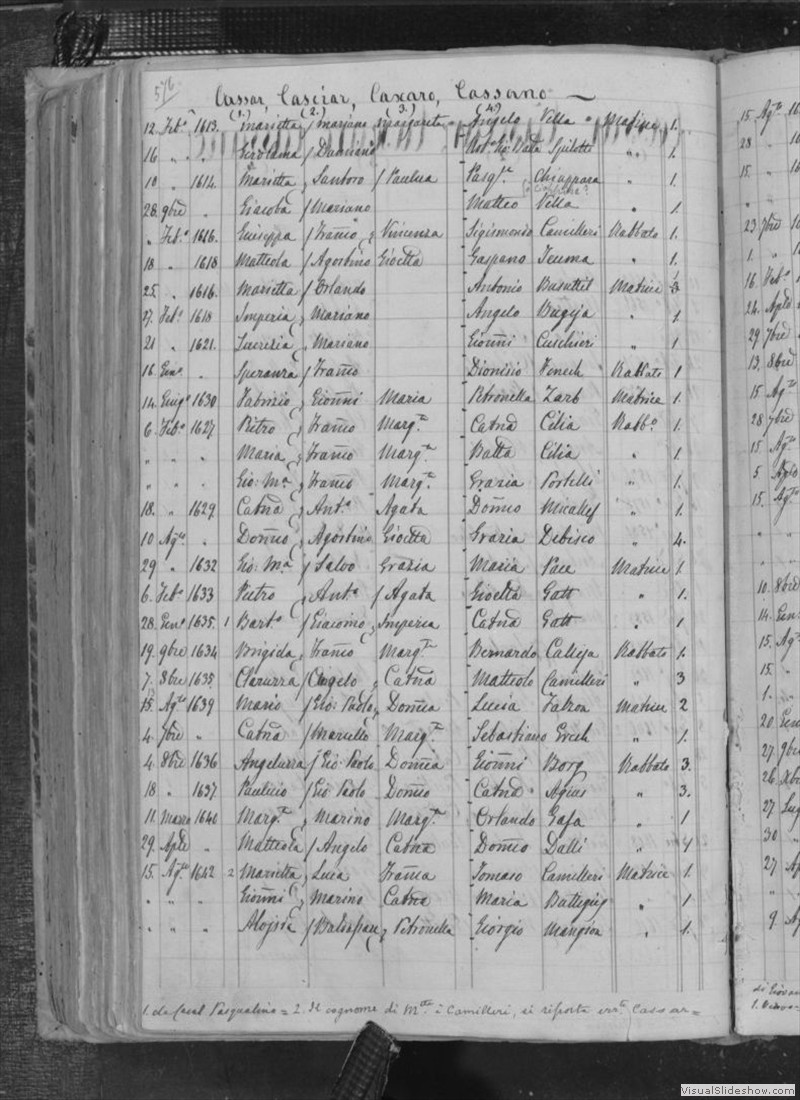 576
Cassar, Casciar, Caxaro, Cassano —
(1.) (2.) (3.) (4.)
12 Feb.o 1613. Marietta / Mariano Margarita Angelo Villa " Matrice 1.
16 " " Girolama / Damiano Spilotti " 1.
10 " 1614. Marietta / Santoro / Paulica Pasq.le Chiappara " 1.
28 9bre " Giacoba / Mariano Matteo Villa " 1
" Feb.o 1616. Giuseppa / Franco , Vincenza Sigismondo Camilleri Rabbato 1.
18 " 1618 Matteola / Agostino Gioetta Gaspano Teuma " 1.
25 " 1616. Marietta / Orlando Antonio Busuttil Matrice 3
17. Feb.o 1618 Imperia , Mariano Angelo Bugeja " 1
21 " 1621. Lucrezia , Mariano Gionni Cuschieri " 1
16 Gen.o " Speranza / Franco Dionisio Vinech Rabbato 1
14 Giug.o 1630 Fabrizio , Gionni Maria Petronella Zarb Matrice 1
6. Feb.o 1627 Pietro , Franco Marg.ta Catna Cilia Rabb.o 1.
" " " Maria , Franco Marg.ta Batta Cilia " 1
" " " Gio: M.a , Franco Marg.ta Grazia Portelli " 1
18. " 1629. Catna , Ant.o Agata Domco Micallef " 1.
10 Ag.to " Domco , Agostino Gioetta Grazia Debisco " 4.
29 " 1632 Gio: M.a / Salvo Grazia Maria Pace Matrice 1.
6. Feb.o 1633 Pietro , Ant.o / Agata Gioetta Gatt " 1.
28. Gen.o 1635. 1 Bart.o / Giacomo , Imperia Catna Gatt " 1
19. 9bre 1634 Brigida , Franco Marg.ta Bernardo Calleja Rabbato 1.
7. 8bre 1635 Claruzza / Angelo , Catna Matteolo Camilleri " 3
15. Ag.to 1639 Mario / Gio: Paolo , Domca Lucia Falzon Matrice 2
4. 7bre " Catna / Marcello Marg.ta Sebastiano Grech " 1.
4. 8bre 1636 Angeluzza / Gio: Paolo Domca Gionni Borg Rabbato 3.
18 " 1637 Paulicio / Gio: Paolo Domco Catna Agius " 3.
11. Marzo 1640 Marg.ta , Marino Marg.ta Orlando Gafa " 1
29. Aple " Matteola / Angelo Catna Domco Dalli "
15. Ag.to 1642 2 Marietta , Luca Franca Tomaso Camilleri Matrice 1
" " " Gionni , Marino Catna Maria Buttigieg " 1
" " " Alojsia / Baldassare , Petronella Giorgio Mangion " 1.
1. da Casal Pasqualino = 2. Il cognome di M.tta è Camilleri, si riporta Cassar =
15 Ag.to
28
15
23 7bre
1.
16 Feb.o
24. Aple
29 7bre
13. 8bre
15 Ag.to
28 7bre
15. Ag.to
5. Aple
15. Ag.to
10. 8bre
14. Gen
15. Ag
15.
1.
20 Gen
27. 9bre
26. Xbr
27 Lug
30
27
9.
di Giova
VisualSlideshow.com